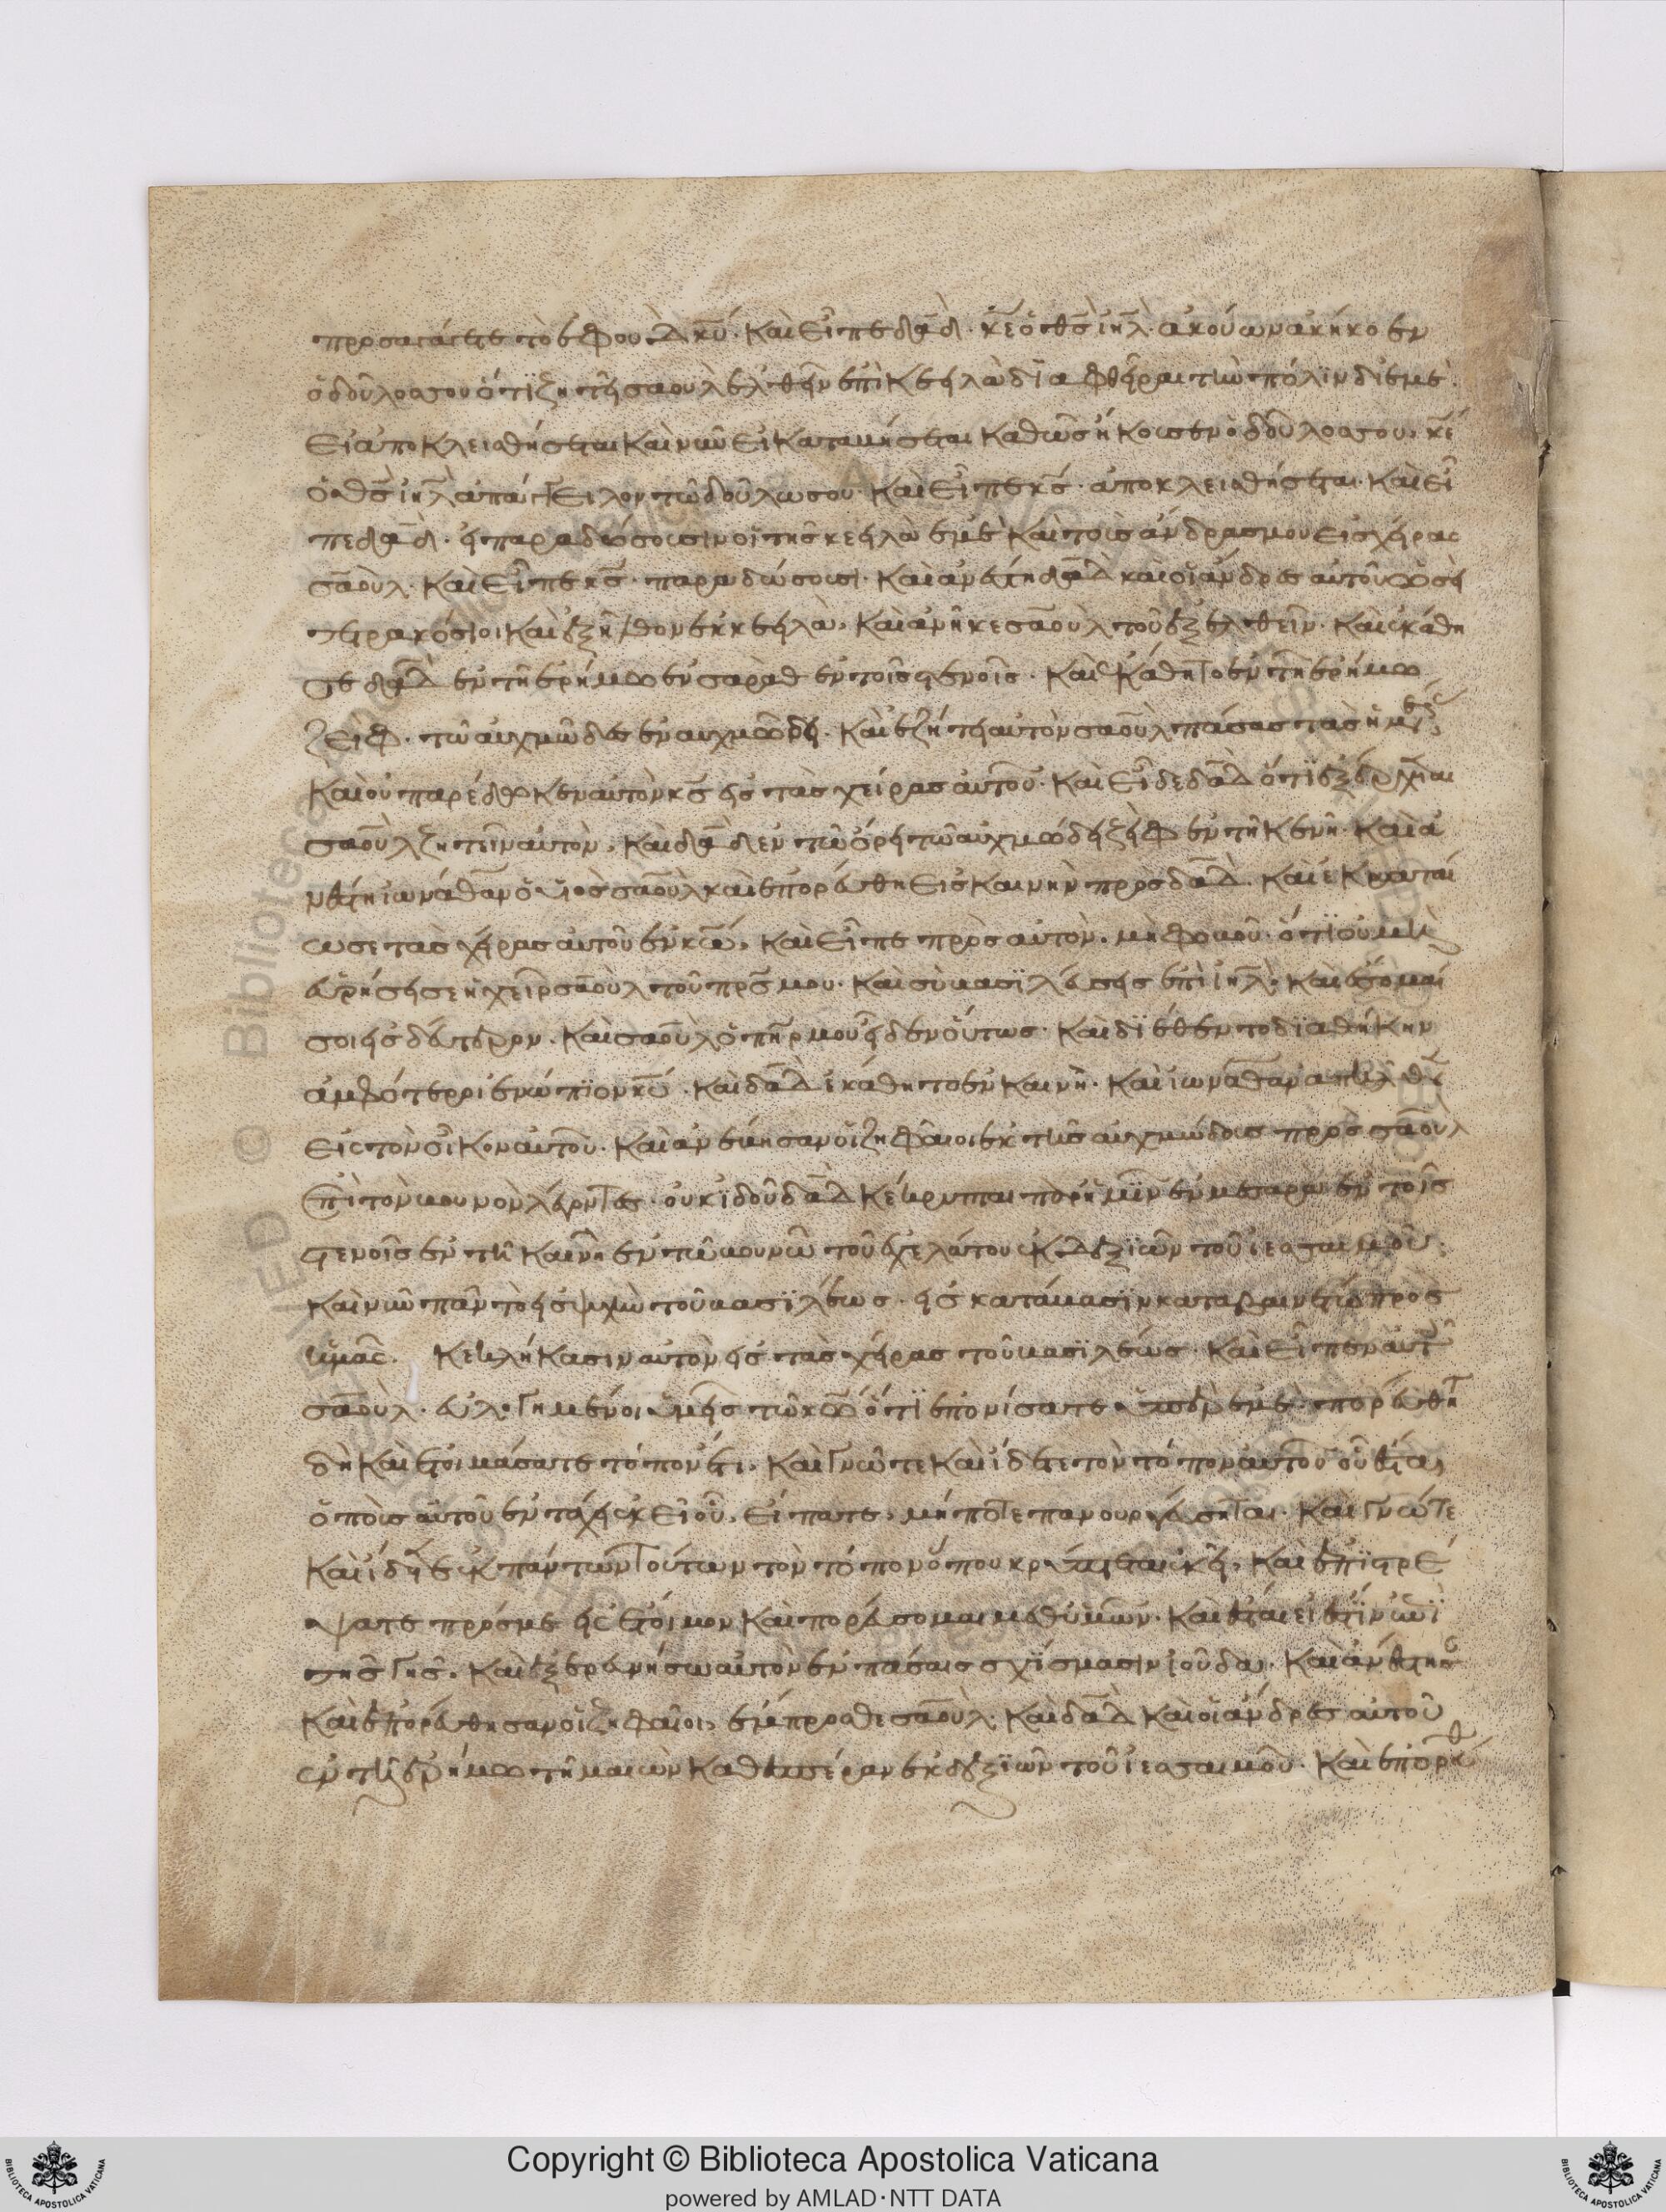 προσάγαγε τὸ ἐφοὺδ κυ̅· καὶ εἶπε δα̅δ· κε̅ ὁ θς̅ ιη̅λ ἀκούων ἀκήκοεν
ὁ δοῦλος σου ὅτι ζητῆ σαοὺλ ἐλθῆν ἐπὶ κεηλὰ διαφθῆραι τὴν πόλιν δι ἐμέ·
εἰ ἀποκλεισθήσεται καὶ νῦν εἰ καταβήσεται καθὼς ἤκουσεν ὁ δοῦλος σου, κε̅
ὁ θς̅ ιη̅λ ἀπάγγειλον τῶ δούλω σου· καὶ εἶπε κς̅· ἀποκλεισθήσεται· καὶ εἶ
πε δα̅δ· ἠ παραδώσουσιν οἱ τῆς κεηλὰ ἐμὲ καὶ τοὺς ἄνδρας μου εἰς χῆρας
σαοὺλ· καὶ εἶπε κς̅· παραδώσουσι· καὶ ἀνέστη δα̅δ καὶ οἱ ἄνδρες αὐτοῦ ὡσὴ
τετρακόσιοι καὶ ἐξῆλθον ἐκ κεηλὰ, καὶ ἀνῆκε σαοὺλ τοῦ ἐξελθεῖν· καὶ ἐκάθη
σε δα̅δ ἐν τῆ ἐρήμω ἐν σαρὰθ ἐν τοῖς στενοῖς· καὶ ἐκάθητο ἐν τῆ ἐρήμω
ζεὶφ· τῶ αὐχμώδει ἐν αὐχμώδη· καὶ ἐζήτη αὐτὸν σαοὺλ πάσας τὰς ἡμέ
καὶ οὐ παρέδωκεν αὐτὸν κς̅ ἠς τὰς χεῖρας αὐτοῦ· καὶ εἶδε δα̅δ ὅτι ἐξέρχεται
σαοὺλ ζητεῖν αὐτὸν, καὶ δα̅δ ἐν τῶ ὄρη τῶ αὐχμώδη ζὴφ ἐν τῆ κενῆ· καὶ ἀ
νέστη ἰωνάθαν ὁ υἱὸς σαοὺλ καὶ ἐπορεύθη εἰς καινὴν πρὸς δα̅δ· καὶ ἐκραταί
ωσε τὰς χῆρας αὐτοῦ ἐν κω̅, καὶ εἶπε πρὸς αὐτὸν, μὴ φοβοῦ· ὅτι οὐ μὴ
εὑρήση σε ἡ χεὶρ σαοὺλ τοῦ πρς̅ μου· καὶ σὺ βασιλεύσης ἐπὶ ιη̅λ· καὶ ἔσομαί
σοι ἠς δεύτερον· καὶ σαοὺλ ὁ πηρ̅ μου ἦδεν οὕτως· καὶ διέθεντο διαθήκην
ἀμφότεροι ἐνώπιον κυ̅· καὶ δα̅δ ἐκάθητο ἐν καινῆ· καὶ ἰωνάθαν ἀπῆλθεν
εἰς τὸν οἶκον αὐτοῦ· καὶ ἀνέβησαν οἱ ζηφαῖοι ἐκ τῆς αὐχμώδους πρὸς σαοὺλ
ἐπὶ τὸν βουνὸν λέγοντες· οὐκ ἰδοῦ δα̅δ κέκρυπται παρ ἡμῖν ἐν μεσσαρὰ ἐν τοῖς
στενοῖς ἐν τῆ καινῆ ἐν τῶ βουνῶ τοῦ ἐχελάτου ἐκ δεξιῶν τοῦ ἰεσσαιμοῦ·
καὶ νῦν πᾶν τὸ ἠς ψυχὴν τοῦ βασιλέως· ἠς κατάβασιν καταβαινέτω πρὸς
ἡμᾶς. κεκλήκασιν αὐτὸν ἠς τὰς χῆρας τοῦ βασιλέως· καὶ εἶπεν αὐτοῖ
σαοὺλ· εὐλογημένοι ὑμῆς τῶ κω̅ ὅτι ἐπονέσατε ὑπὲρ ἐμὲ· πορεύθητε
δὴ καὶ ἑτοιμάσατε τόπον ἔτι, καὶ γνῶτε καὶ ἴδετε τὸν τόπον αὐτοῦ οὗ ἔσται,
ὁ ποὺς αὐτοῦ ἐν τάχη ἐκεῖ οὗ, εἴπατε, μήποτε πανουργεύσηται· καὶ γνῶτε
καὶ ἴδητε ἐκ πάντων τούτων τὸν τόπον ὅπου κρύπτεται ἐκῆ, καὶ ἐπιστρέ
ψατε πρός με ἠς ἕτοιμον καὶ πορεύσομαι μεθ ὑμῶν· καὶ ἔσται εἰ ἔστιν ἐπὶ
τῆς γῆς, καὶ ἐξερευνήσω αὐτὸν ἐν πάσαις σχίσμασιν ἰούδα, καὶ ἀνέστησ
καὶ ἐπορεύθησαν οἱ ζηφαῖοι, ἔμπροσθε σαοὺλ, καὶ δα̅δ καὶ οἱ ἄνδρες αὐτοῦ
ἐν τῆ ἐρήμω τῆ μαὼν καθ ἑσπέραν ἐκ δεξιῶν τοῦ ἰεσσαιμοῦ· καὶ ἐπορεύθ
Copyright © Biblioteca Apostolica Vaticana
powered by AMLAD·NTT DATA